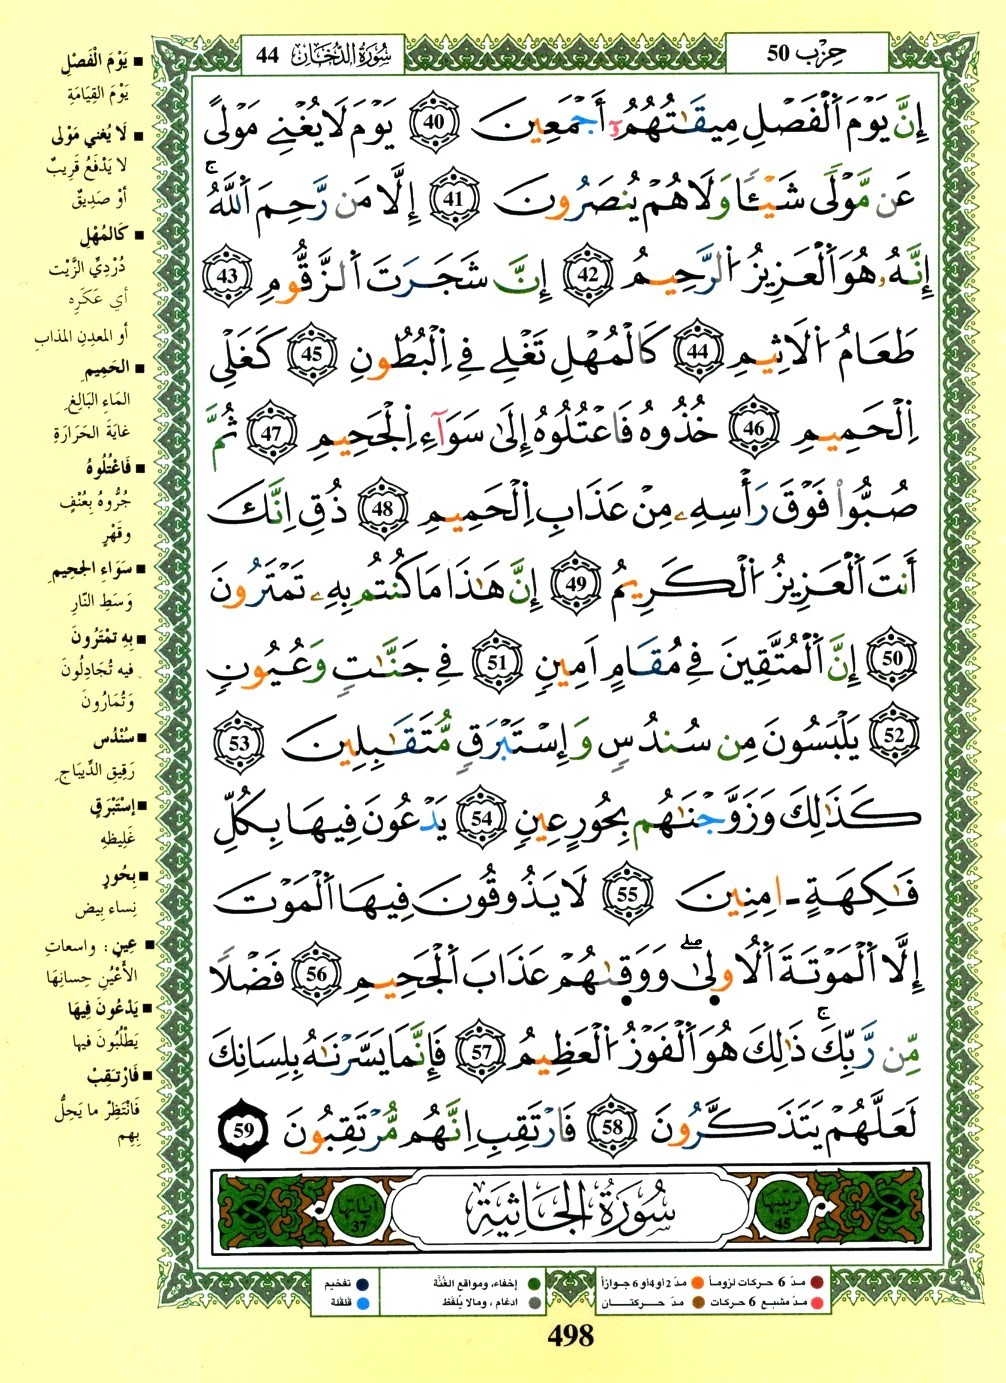 حزب 50
سورة الدخان 44
إِنَّ يَوْمَ اَ۬لْفَصْلِ مِيقَٰتُهُمُۥٓ أَجْمَعِينَ 40 يَوْمَ لَا يُغْنِے مَوْلىً
عَن مَّوْلىٗ شَيْـٔاٗ وَلَا هُمْ يُنصَرُونَ 41 إِلَّا مَن رَّحِمَ اَ۬للَّهُۚ
إِنَّهُۥ هُوَ اَ۬لْعَزِيزُ اُ۬لرَّحِيمُ 42 إِنَّ شَجَرَتَ اَ۬لزَّقُّومِ 43
طَعَامُ اُ۬لَاثِيمِ 44 كَالْمُهْلِ تَغْلِے فِے اِ۬لْبُطُونِ 45 كَغَلْيِ
اِ۬لْحَمِيمِ 46 خُذُوهُ فَاعْتُلُوهُ إِلَىٰ سَوَآءِ اِ۬لْجَحِيمِ 47 ثُمَّ
صُبُّواْ فَوْقَ رَأْسِهِۦ مِنْ عَذَابِ اِ۬لْحَمِيمِ 48 ذُقِ اِنَّكَ
أَنتَ اَ۬لْعَزِيزُ اُ۬لْكَرِيمُ 49 إِنَّ هَٰذَا مَا كُنتُم بِهِۦ تَمْتَرُونَ
50 إِنَّ اَ۬لْمُتَّقِينَ فِے مُقَامٍ اَمِينٖ 51 فِے جَنَّٰتٖ وَعُيُونٖ
52 يَلْبَسُونَ مِن سُندُسٖ وَإِسْتَبْرَقٖ مُّتَقَٰبِلِينَ 53
كَذَٰلِكَ وَزَوَّجْنَٰهُم بِحُورٍ عِينٖ 54 يَدْعُونَ فِيهَا بِكُلِّ
فَٰكِهَةٍ ـ اٰمِنِينَ 55 لَا يَذُوقُونَ فِيهَا اَ۬لْمَوْتَ
إِلَّا اَ۬لْمَوْتَةَ اَ۬لُاو۪لَىٰۖ وَوَق۪ىٰهُمْ عَذَابَ اَ۬لْجَحِيمِ 56 فَضْلاٗ
مِّن رَّبِّكَۚ ذَٰلِكَ هُوَ اَ۬لْفَوْزُ اُ۬لْعَظِيمُ 57 فَإِنَّمَا يَسَّرْنَٰهُ بِلِسَانِكَ
لَعَلَّهُمْ يَتَذَكَّرُونَ 58 فَارْتَقِبِ اِنَّهُم مُّرْتَقِبُونَ 59
ترتيبها 45
سورة الجاثية
آياتها 37
■ يَوْمَ الْفَصْلِ
يَوْمَ القِيَامَةِ
■ لَا يُغْنِي مَوْلى
لا يَدْفَعُ قَرِيبٌ
أوْ صَدِيقٌ
■ كَالمُهْلِ
دُرْدِيِّ الزَّيْت
أي عَكَرِه
أو المعدِنِ المذاب
■ الحَمِيمِ
المَاءِ البَالِغِ
غَايَةَ الحَرَارَةِ
■ فَاعْتُلُوهُ
جُرُّوهُ بِعُنْفٍ
وقَهْرٍ
■ سَوَاءِ الجَحِيمِ
وَسَطِ النَّارِ
■ بِهِ تَمْتَرُونَ
فيه تُجَادِلُونَ
وَتُمَارُونَ
■ سُنْدُس
رَقِيقِ الدِّيبَاجِ
■ إسْتَبْرَقٍ
غَلِيظِهِ
■ بِحُورٍ
نِساء بِيض
■ عِينٍ : واسعاتِ
الأَعْيُنِ حِسانِهَا
■ يَدْعُونَ فِيهَا
يَطْلُبُونَ فيها
■ فَارْتَقِبْ
فَانْتَظِرْ ما يَحِلُّ
بِهِم
مدّ 6 حركات لزوماً
مدّ 2 أو 4 أو 6 جوازاً
إخفاء، ومواقع الغُنَّة
تفخيم
مدّ مشبع 6 حركات
مدّ حركتان
ادغام ، ومالا يُلفَظ
قلقلة
498